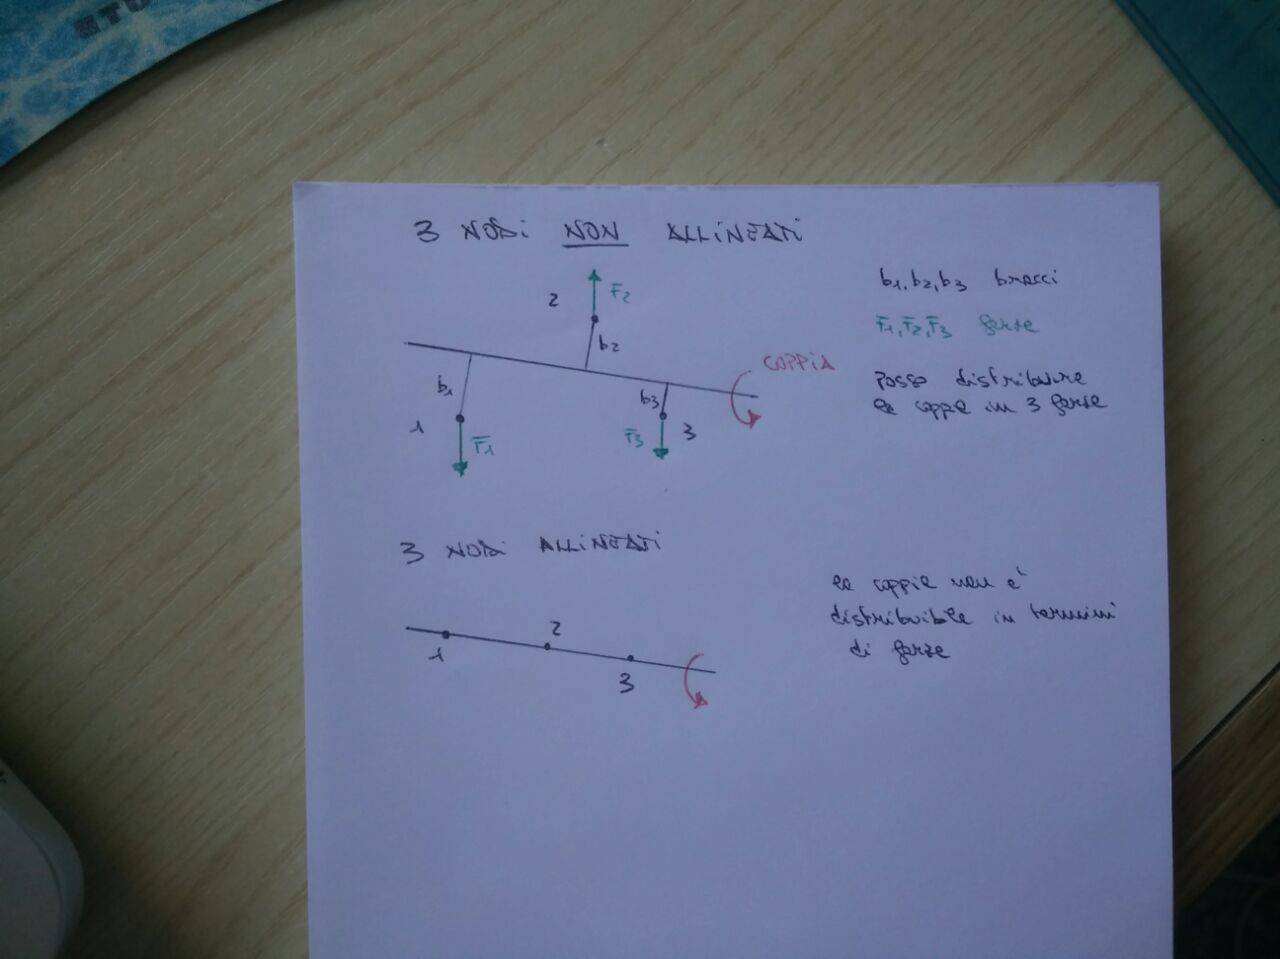 3 NODI NON ALLINEATI
F2
2
b2
b1
1
F1
b3
F3
3
COPPIA
b1, b2, b3 bracci
F1, F2, F3 forze
posso distribuire
la coppia in 3 forze
3 NODI ALLINEATI
1
2
3
la coppia non è
distribuibile in termini
di forze